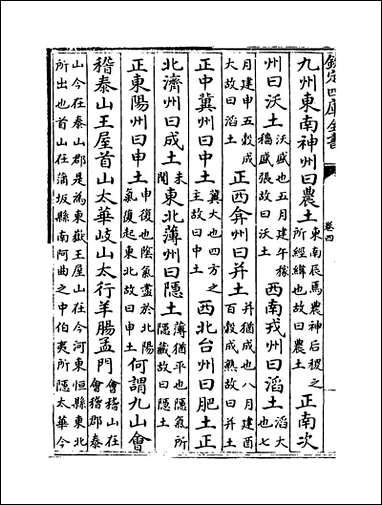 欽定四庫全書
卷四
九州東南神州曰農土東南辰爲農神后稷之所經緯也故曰農土正南次
州曰沃土沃盛也五月建午稼穡盛張故曰沃土西南戎州曰滔土滔大也七
月建申五穀成大故曰滔土正西弇州曰并土并猶成也八月建酉百穀成熟故曰并土
正中冀州曰中土冀大也四方之主故曰中土西北台州曰肥土正
北濟州曰成土未聞東北薄州曰隱土薄猶平也隱氣所隱藏故曰隱土
正東陽州曰申土申復也陰氣盡於北陽氣復起東北故曰申土何謂九山會
稽泰山王屋首山太華岐山太行羊腸孟門會稽山在會稽郡泰
山今在泰山郡是為東嶽王屋山在今河東恒縣東北
所出也首山在蒲坂縣南阿曲之中伯夷所隱太華今